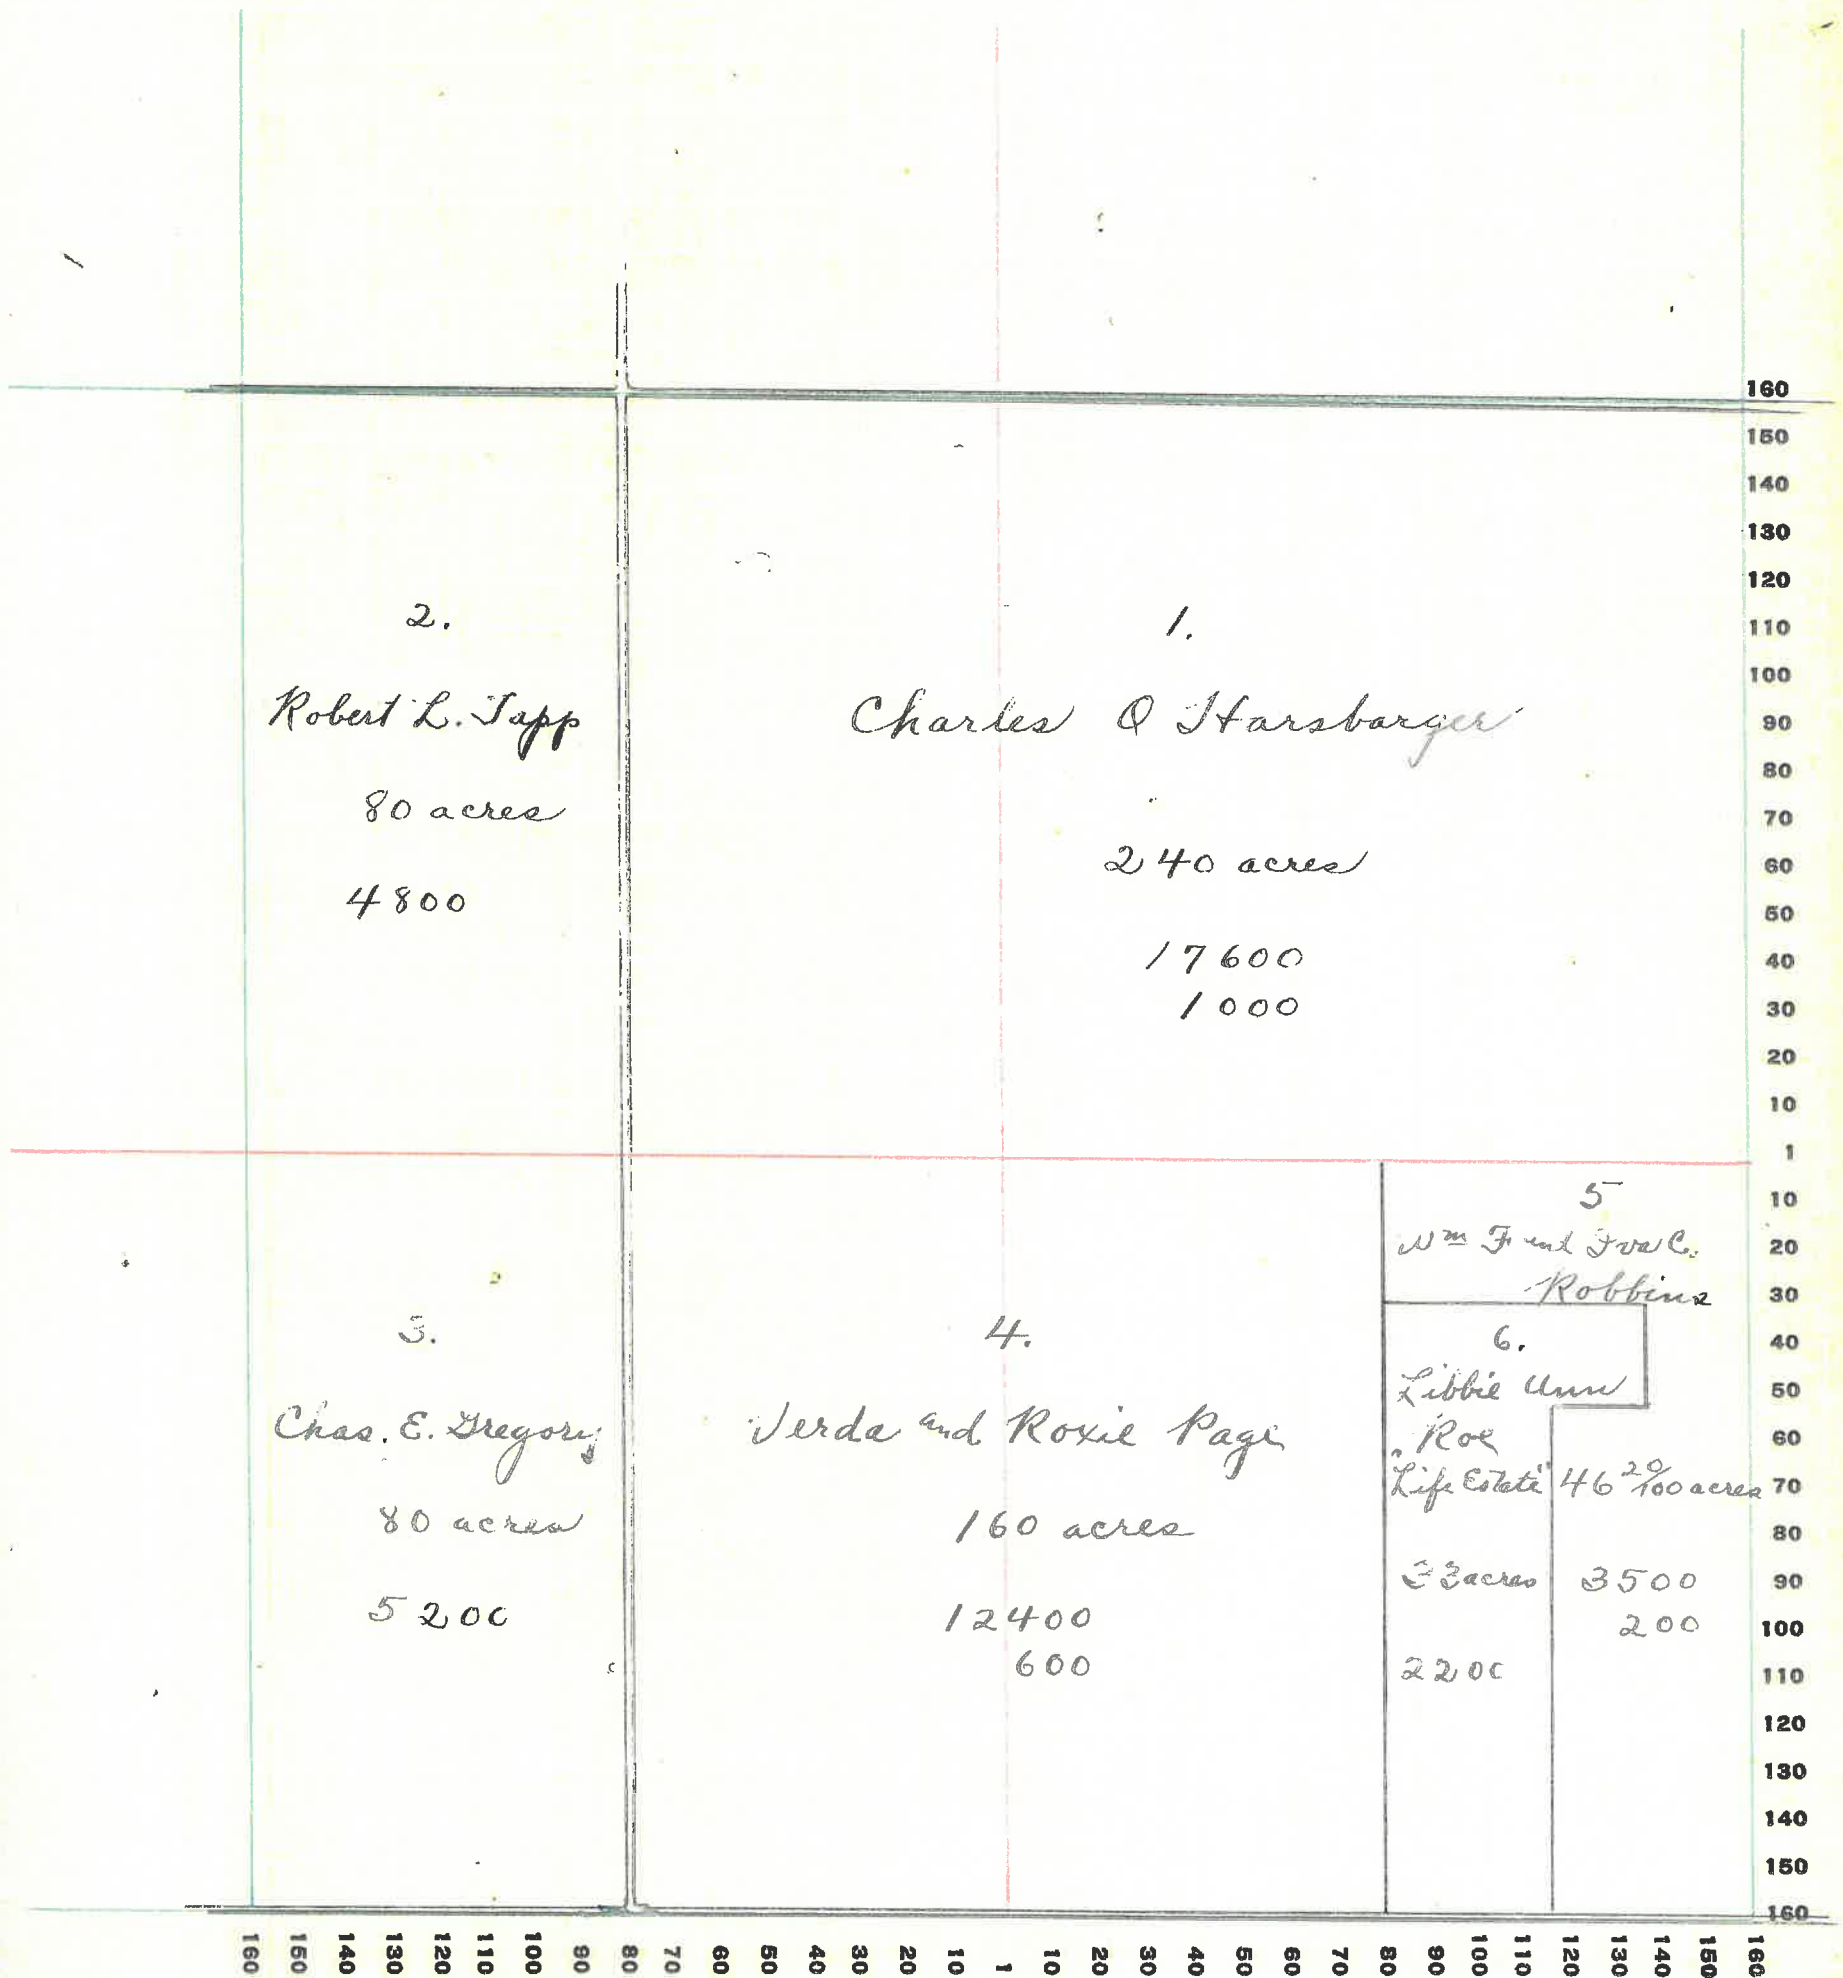 2.
Robert L. Tapp
80 acres
4800
1.
Charles O Harsbarger
240 acres
17600
1000
3.
Chas. E. Gregory
80 acres
5200
4.
Verda and Roxie Page
160 acres
12400
600
5
Wm F and Iva C.
Robbins
46 20/100 acres
3500
200
6.
Libbie Ann
Roe
"Life Estate"
33 acres
2200
160
150
140
130
120
110
100
90
80
70
60
50
40
30
20
10
1
10
20
30
40
50
60
70
80
90
100
110
120
130
140
150
160
160 150 140 130 120 110 100 90 80 70 60 50 40 30 20 10 1 10 20 30 40 50 60 70 80 90 100 110 120 130 140 150 160